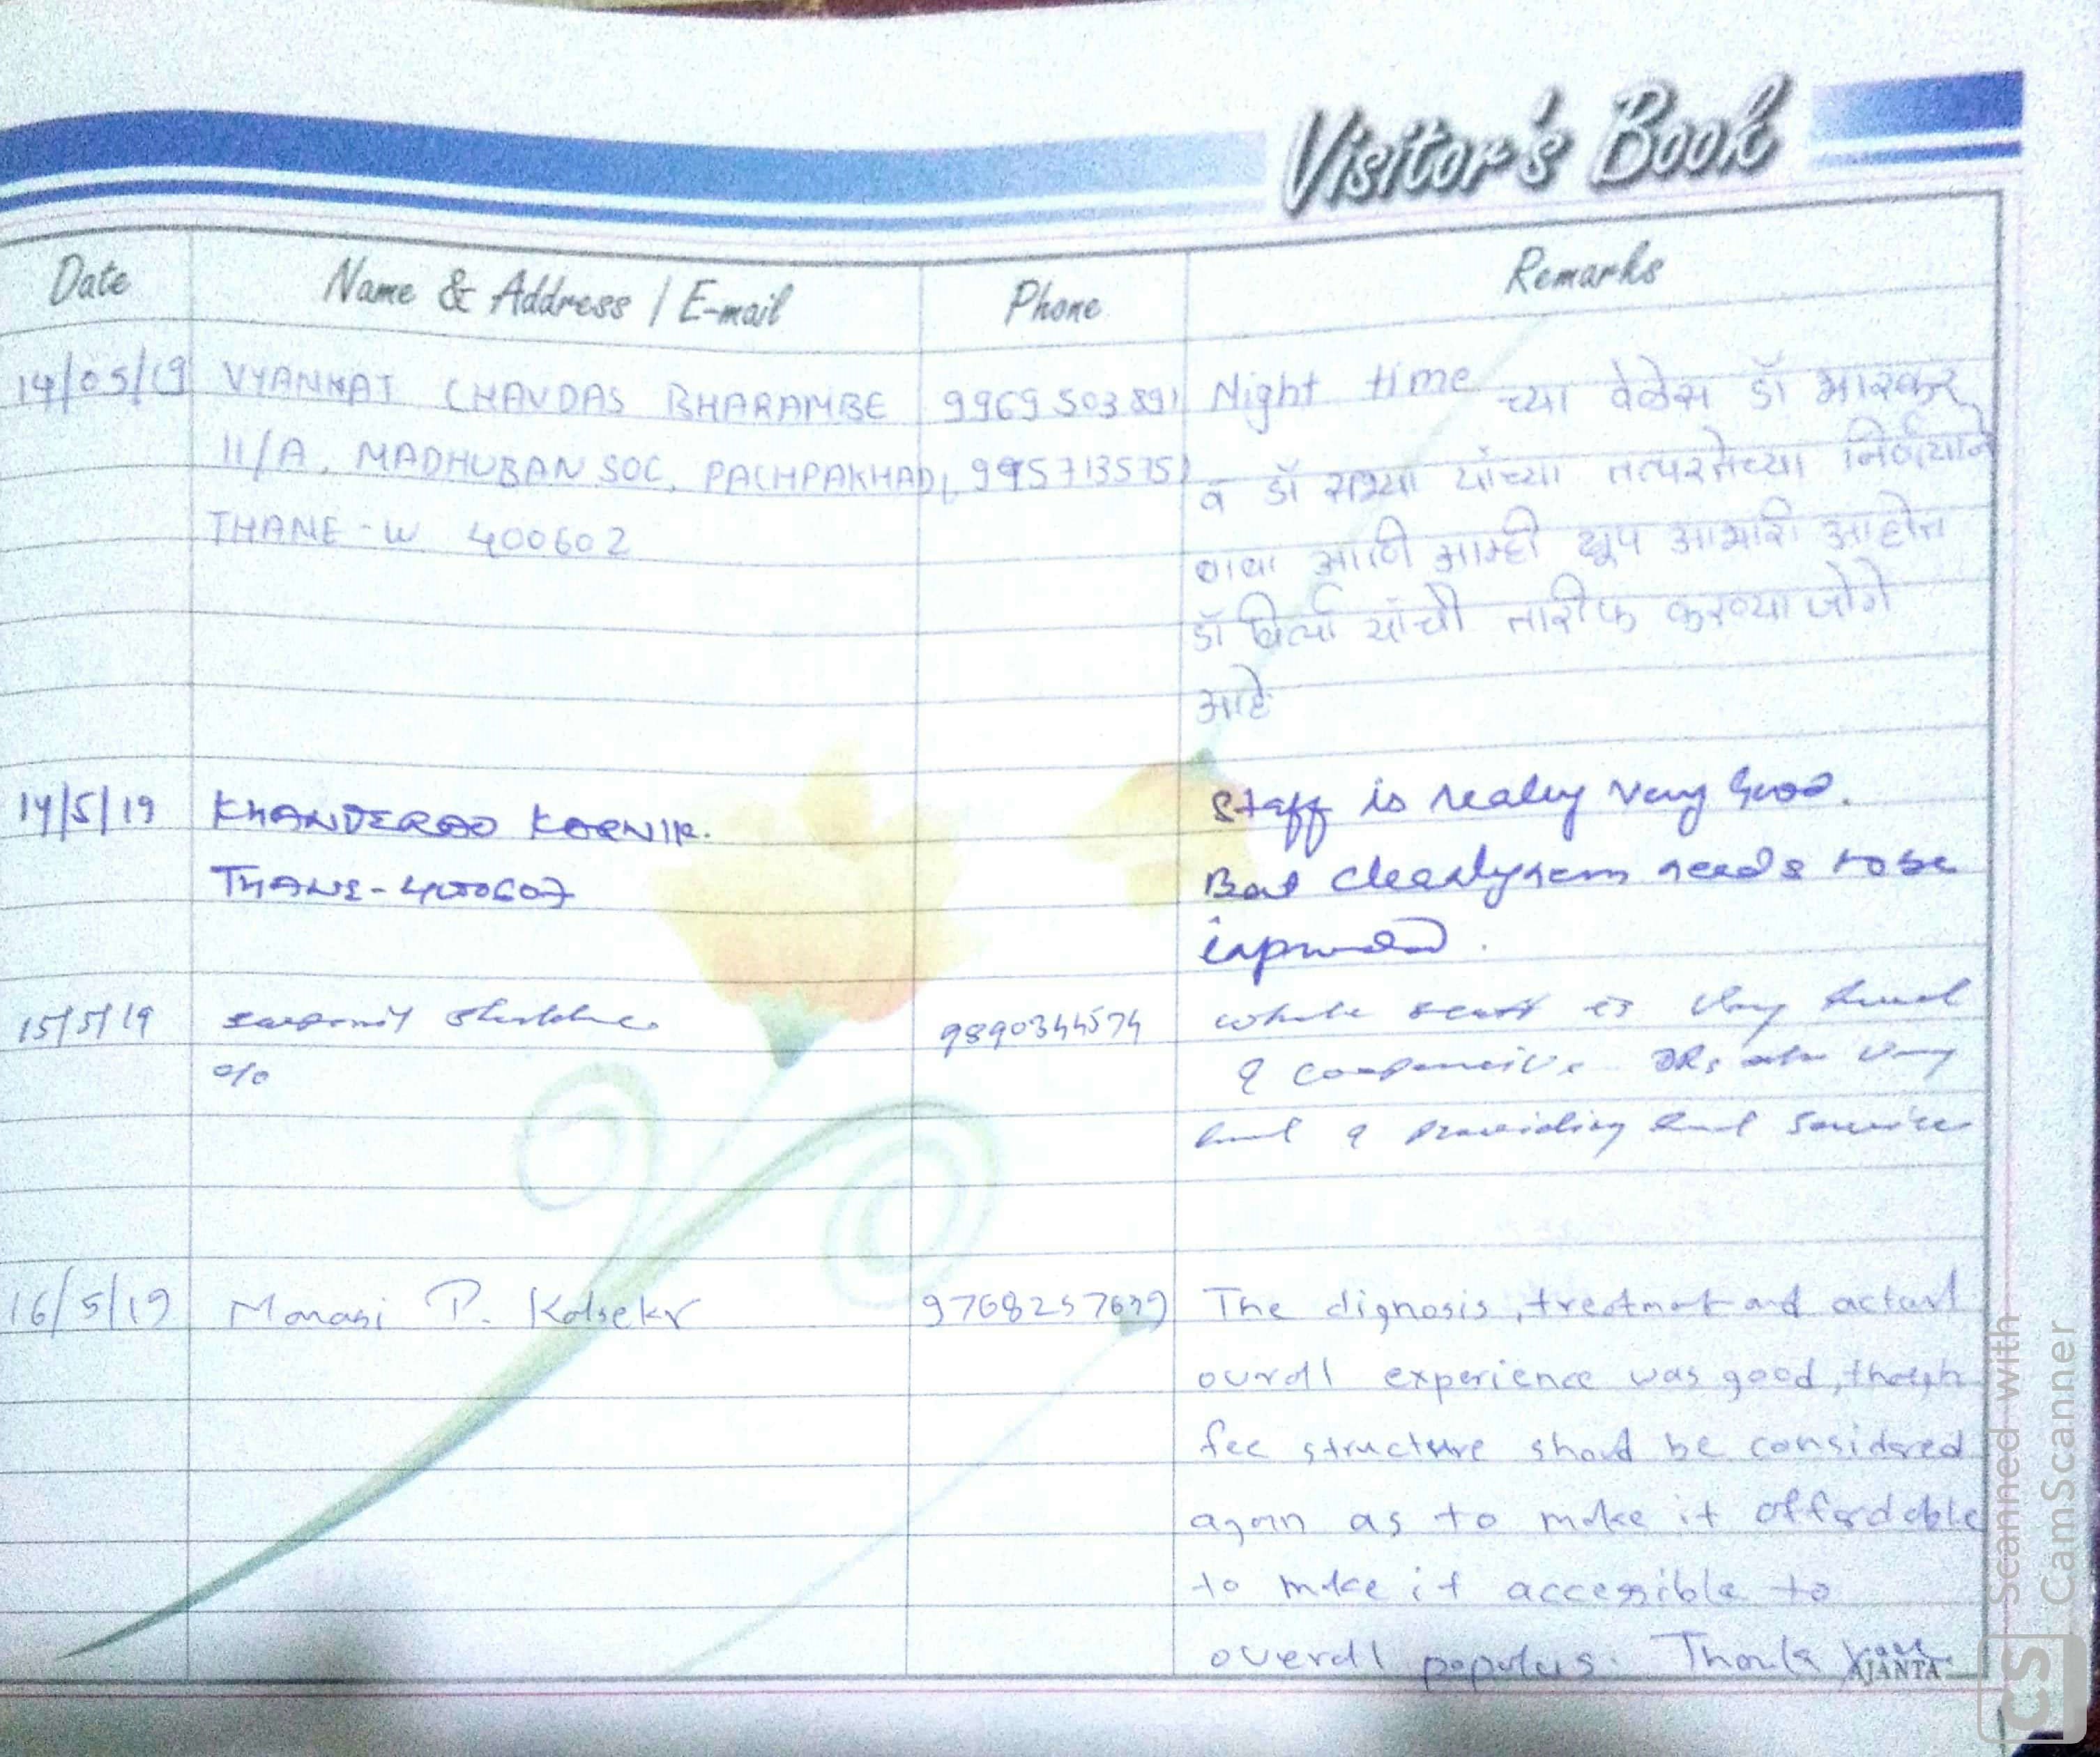 Visitor's Book
Date Name & Address / E-mail Phone Remarks
14/05/19 VYANKAT CHAVDAS BHARAMBE 9969503891 Night time च्या वेळेस डॉ भास्कर
11/A, MADHUBAN SOC, PACHPAKHADI, व डॉ यांच्या तत्परतेच्या निर्णयाने
THANE-W 400602
बाबा आणि आम्ही खूप आभारी आहोत
डॉ यांची तारीफ करण्या जोगे
आहे
14/5/19 KHANDERAO KARNIK. Staff is really very good.
THANE-400607 But needs to be
improved.
15/5/19 9890344574 whole staff is very
% & DRs are very
& providing service
16/5/19 Manasi P. Kolsekr The dignosis, treatment and actual
overall experience was good, though
fee structure should be considered
again as to make it affordable
to make it accessible to
overall populus. Thank you
AJANTA
Scanned with
CamScanner
CS